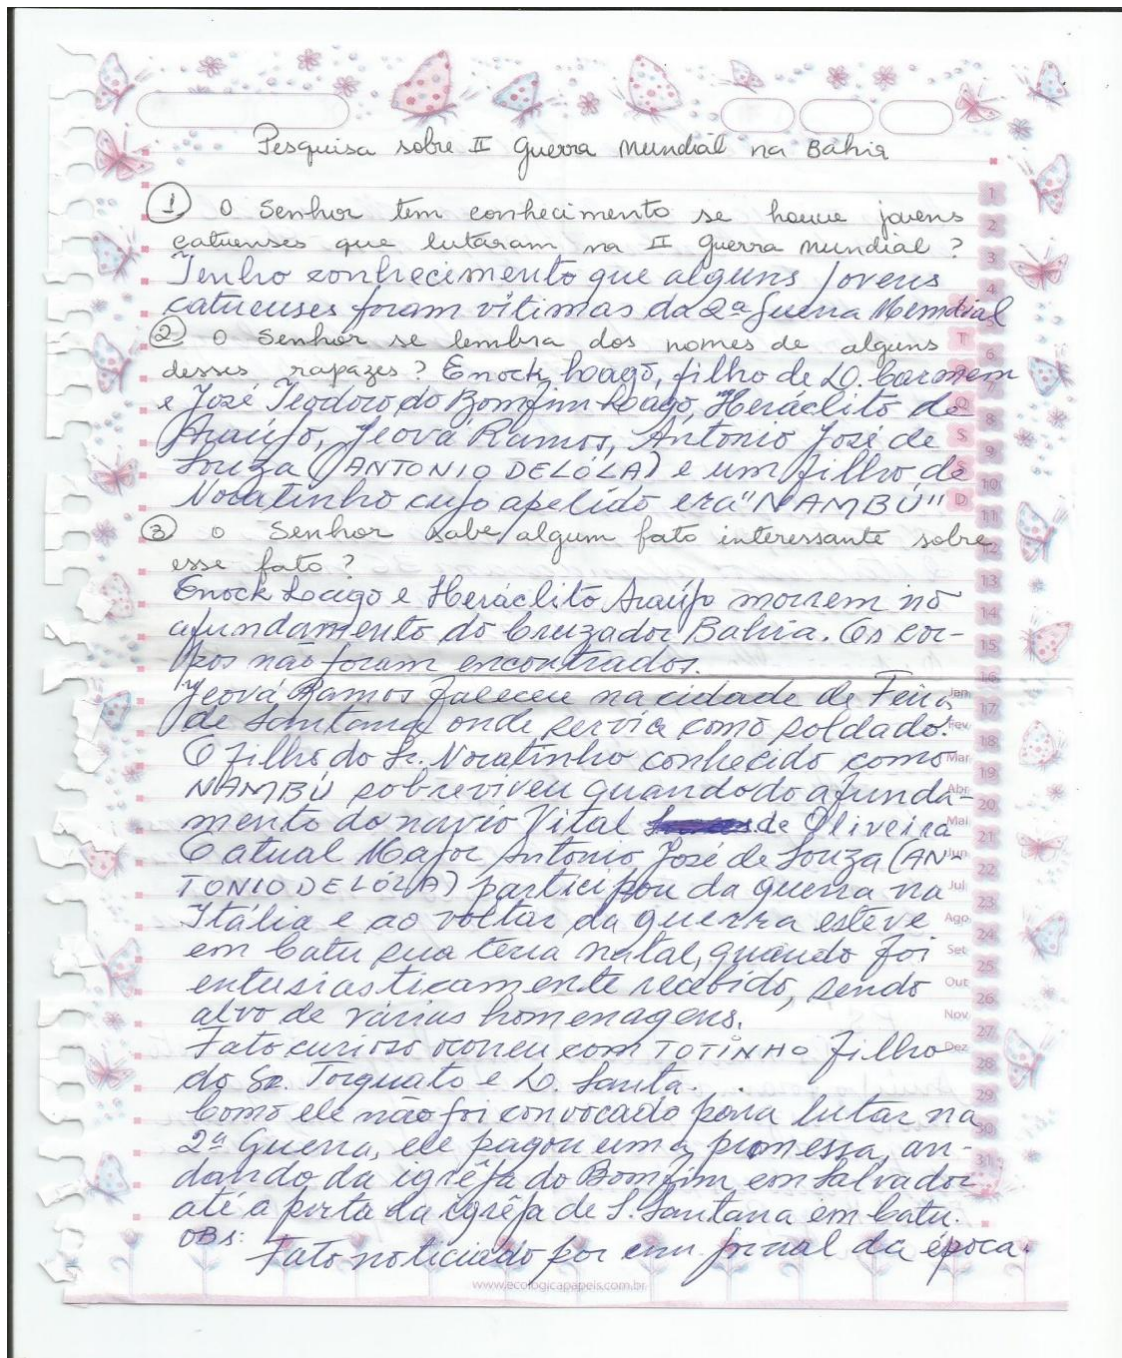 Pesquisa sobre II Guerra Mundial na Bahia
① O Senhor tem conhecimento se houve jovens
catuenses que lutaram na II Guerra Mundial?
Tenho conhecimento que alguns jovens
catuenses foram vítimas da 2ª Guerra Memdial
② O Senhor se lembra dos nomes de alguns
desses rapazes? Enock Lago, filho de D. Carmem
e José Teodoro do Bomfim Lago, Heráclito de
Araújo, Jeová Ramos, Antonio José de
Souza (ANTONIO DE LÓLA) e um filho de
Noratinho cujo apelido era "NAMBÚ"
③ O Senhor sabe algum fato interessante sobre
esse fato?
Enock Lago e Heráclito Araújo morrem no
afundamento do Cruzador Bahia. Os cor-
pos não foram encontrados.
Jeová Ramos faleceu na cidade de Feira
de Santana onde servia como soldado.
O filho do Sr. Noratinho conhecido como
NAMBÚ sobreviveu quando do afunda-
mento do navio Vital de Oliveira
O atual Major Antonio José de Souza (AN-
TONIO DE LÓLA) participou da guerra na
Itália e ao voltar da guerra esteve
em Catu sua terra natal, quando foi
entusiasticamente recebido, sendo
alvo de várias homenagens.
Fato curioso ocorreu com TOTINHO filho
do Sr. Torquato e D. Santa.
Como ele não foi convocado para lutar na
2ª Guerra, ele pagou uma promessa, an-
dando da igrêja do Bomfim em Salvador
até a porta da igrêja de S. Santana em Catu.
OBS:
Fato noticiado por um jornal da época.
1
2
3
4
5
T
6
8
S
9
10
D
11
12
13
14
15
16
Jan
17
Fev
18
Mar
19
Abr
20
Mai
21
Jun
22
Jul
23
Ago
24
Set
25
Out
26
Nov
27
Dez
28
29
30
31
www.ecologicapapeis.com.br